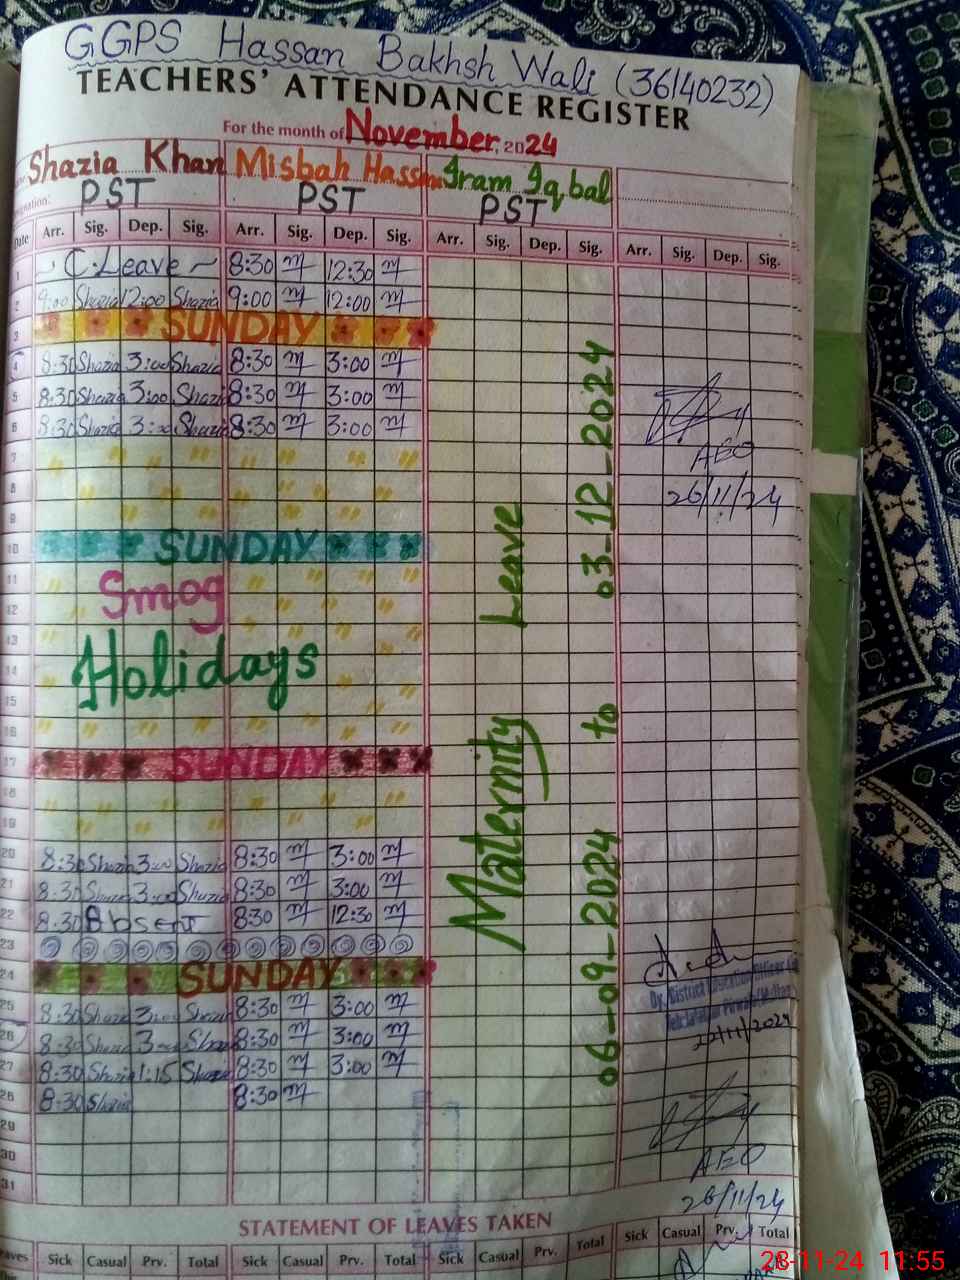 GGPS Hassan Bakhsh Wali (36140232)
TEACHERS' ATTENDANCE REGISTER
For the month of November, 2024
Shazia Khan Misbah Hassan Iram Iqbal
PST PST PST
Date Arr. Sig. Dep. Sig. Arr. Sig. Dep. Sig. Arr. Sig. Dep. Sig. Arr. Sig. Dep. Sig.
1 C.Leave 8:30 m 12:30 m
2 9:00 Shazia 12:00 Shazia 9:00 m 12:00 m
3 SUNDAY
4 8:30 Shazia 3:00 Shazia 8:30 m 3:00 m
5 8:30 Shazia 3:00 Shazia 8:30 m 3:00 m
6 8:30 Shazia 3:00 Shazia 8:30 m 3:00 m
7
AEO
8
26/11/24
9
10 SUNDAY
11 Smog
12
13
14 Holidays
15
16
17 SUNDAY
18
19
Maternity Leave
06-09-2024 to 03-12-2024
20 8:30 Shazia 3:00 Shazia 8:30 m 3:00 m
21 8:30 Shazia 3:00 Shazia 8:30 m 3:00 m
22 8:30 Absent 8:30 m 12:30 m
23
24 SUNDAY
Dy. District Education Officer
22/11/2024
25 8:30 Shazia 3:00 Shazia 8:30 m 3:00 m
26 8:30 Shazia 3:00 Shazia 8:30 m 3:00 m
27 8:30 Shazia 1:15 Shazia 8:30 m 3:00 m
28 8:30 Shazia 8:30 m
29
30
AEO
31
26/11/24
STATEMENT OF LEAVES TAKEN
Sick Casual Prv. Total Sick Casual Prv. Total Sick Casual Prv. Total Sick Casual Prv. Total
28-11-24 11:55